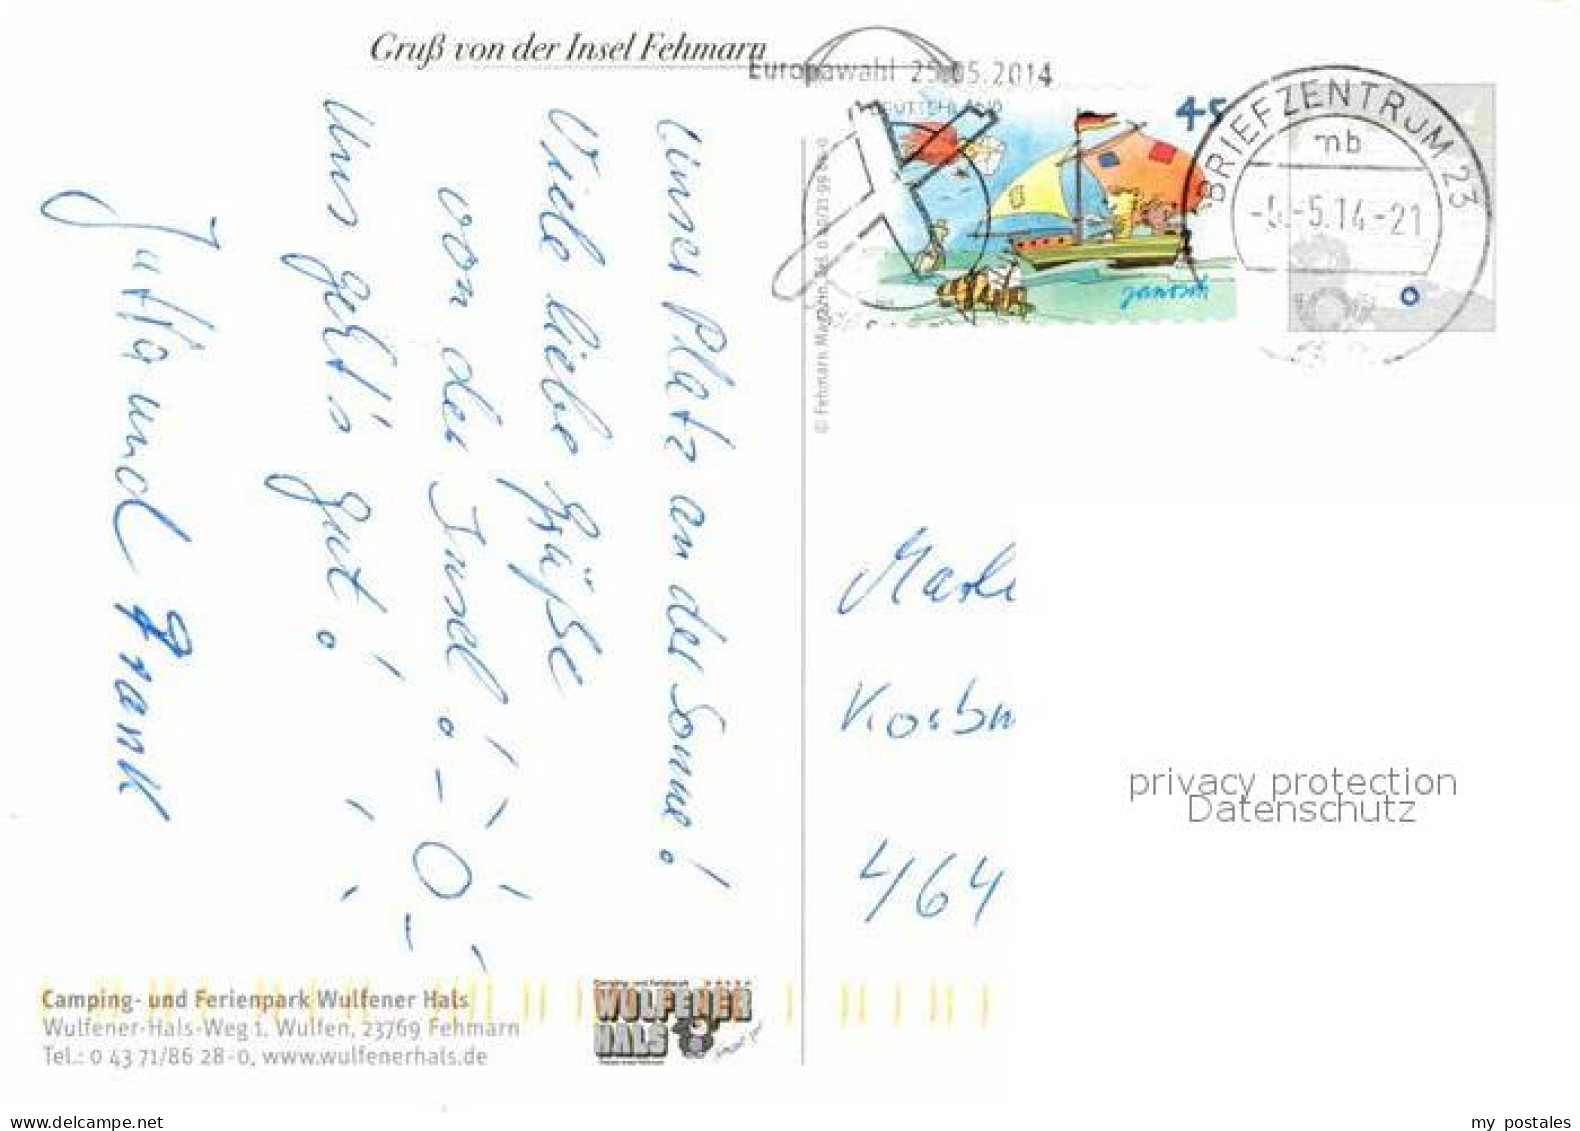 Gruß von der Insel Fehmarn
Unser Platz an der Sonne!
Viele liebe Grüße
von der Insel!
Uns geht's gut!
Jutta und Frank
Camping- und Ferienpark Wulfener Hals
Wulfener-Hals-Weg 1, Wulfen, 23769 Fehmarn
Tel.: 0 43 71/86 28-0, www.wulfenerhals.de
WULFENER
HALS
© Fehmarn Magazin, Tel.
Europawahl 25.05.2014
DEUTSCHLAND
45
janosch
BRIEFZENTRUM 23
mb
5.14-21
464
privacy protection
Datenschutz
delcampe.net
my postales